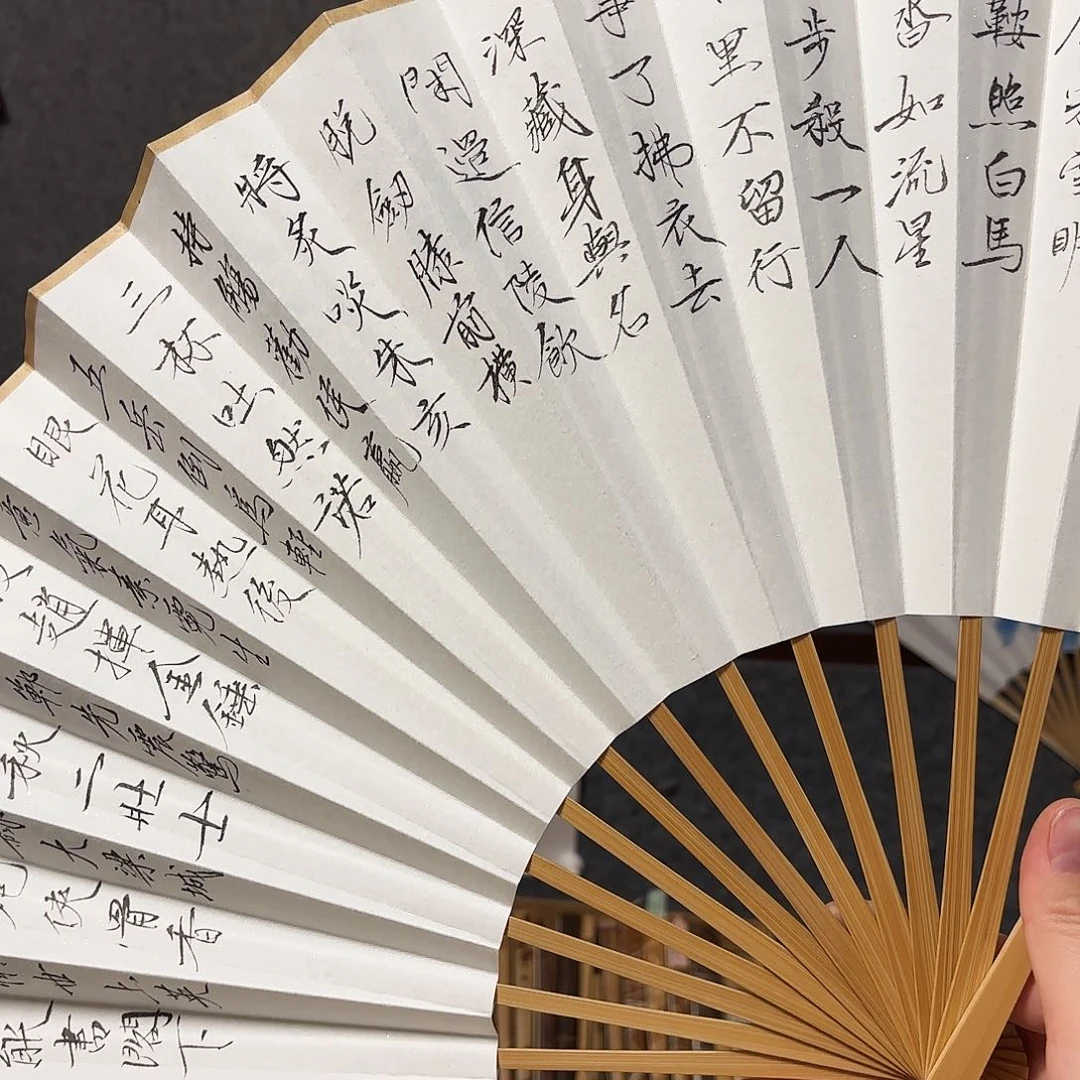 雪明
鞍照白馬
沓如流星
步殺一人
里不留行
事了拂衣去
深藏身與名
閑過信陵飲
脫劍膝前橫
將炙啖朱亥
持觴勸侯嬴
三杯吐然諾
五岳倒為輕
眼花耳熱後
意氣素霓生
趙揮金錘
鄲先震驚
秋二壯士
大梁城
俠骨香
世上英
能書閣下